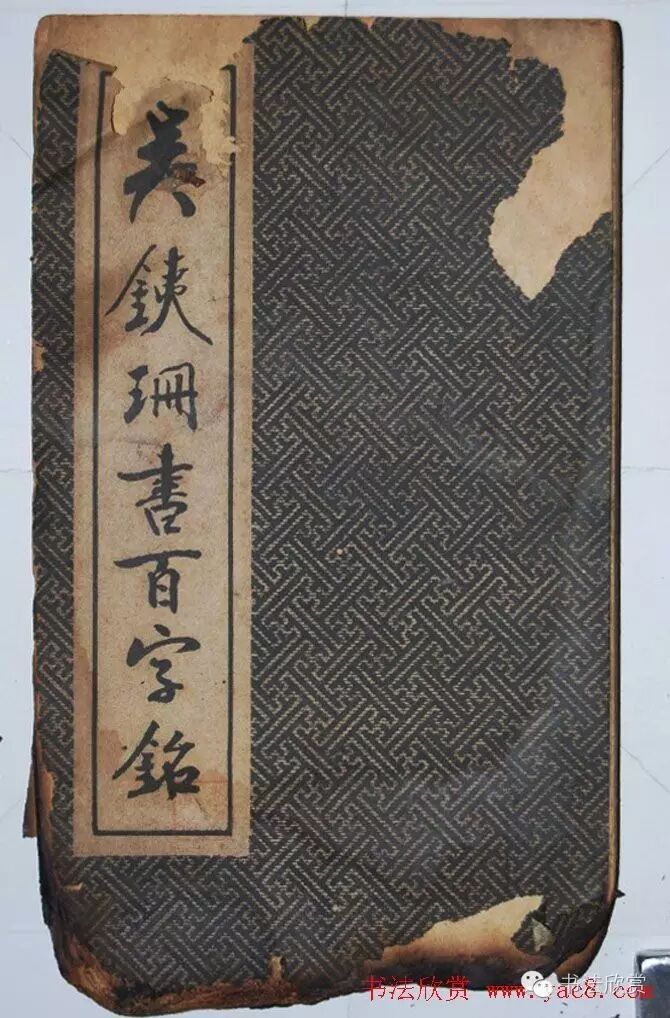 吴鐵珊書百字銘
书法欣赏 www.yac8.com
书法欣赏